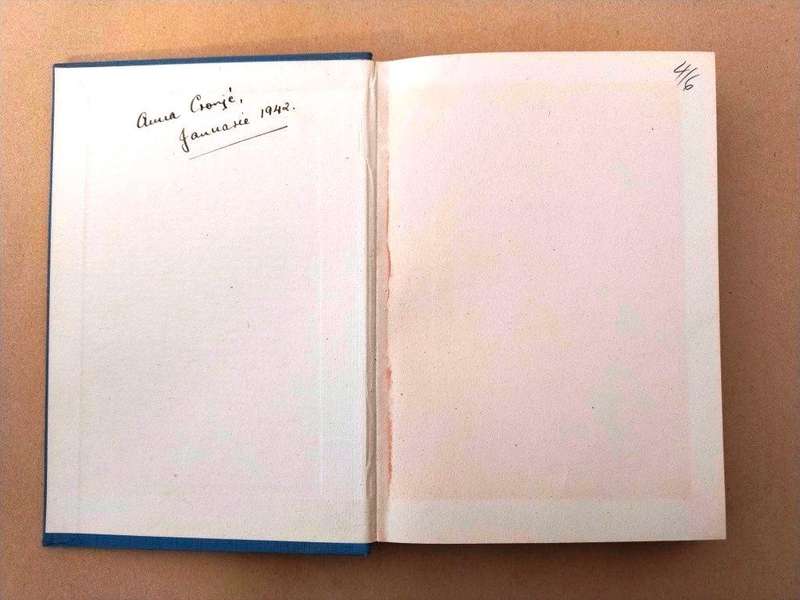 Anna Cronjé,
Januarie 1942.
4/6